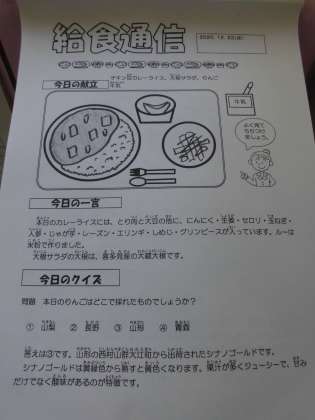 給食通信
今日の献立
チキンカレーライス、大根サラダ、りんご
牛乳
牛乳
よく見て
もりつけ
ましょう。
今日の一言
本日のカレーライスには、とり肉と大豆の他に、にんにく・生姜・セロリ・玉ねぎ・
人参・じゃが芋・レーズン・エリンギ・しめじ・グリンピースが入っています。ルーは
米粉で作りました。
大根サラダの大根は、喜多見産の大蔵大根です。
今日のクイズ
問題 本日のりんごはどこで採れたものでしょうか?
① 山梨 ② 長野 ③ 山形 ④ 青森
答えは③です。山形の西村山群大江町から出荷されたシナノゴールドです。
シナノゴールドは黄緑色から熟すと黄色くなります。果汁が多くジューシーで、甘み
だけでなく酸味があるのが特徴です。